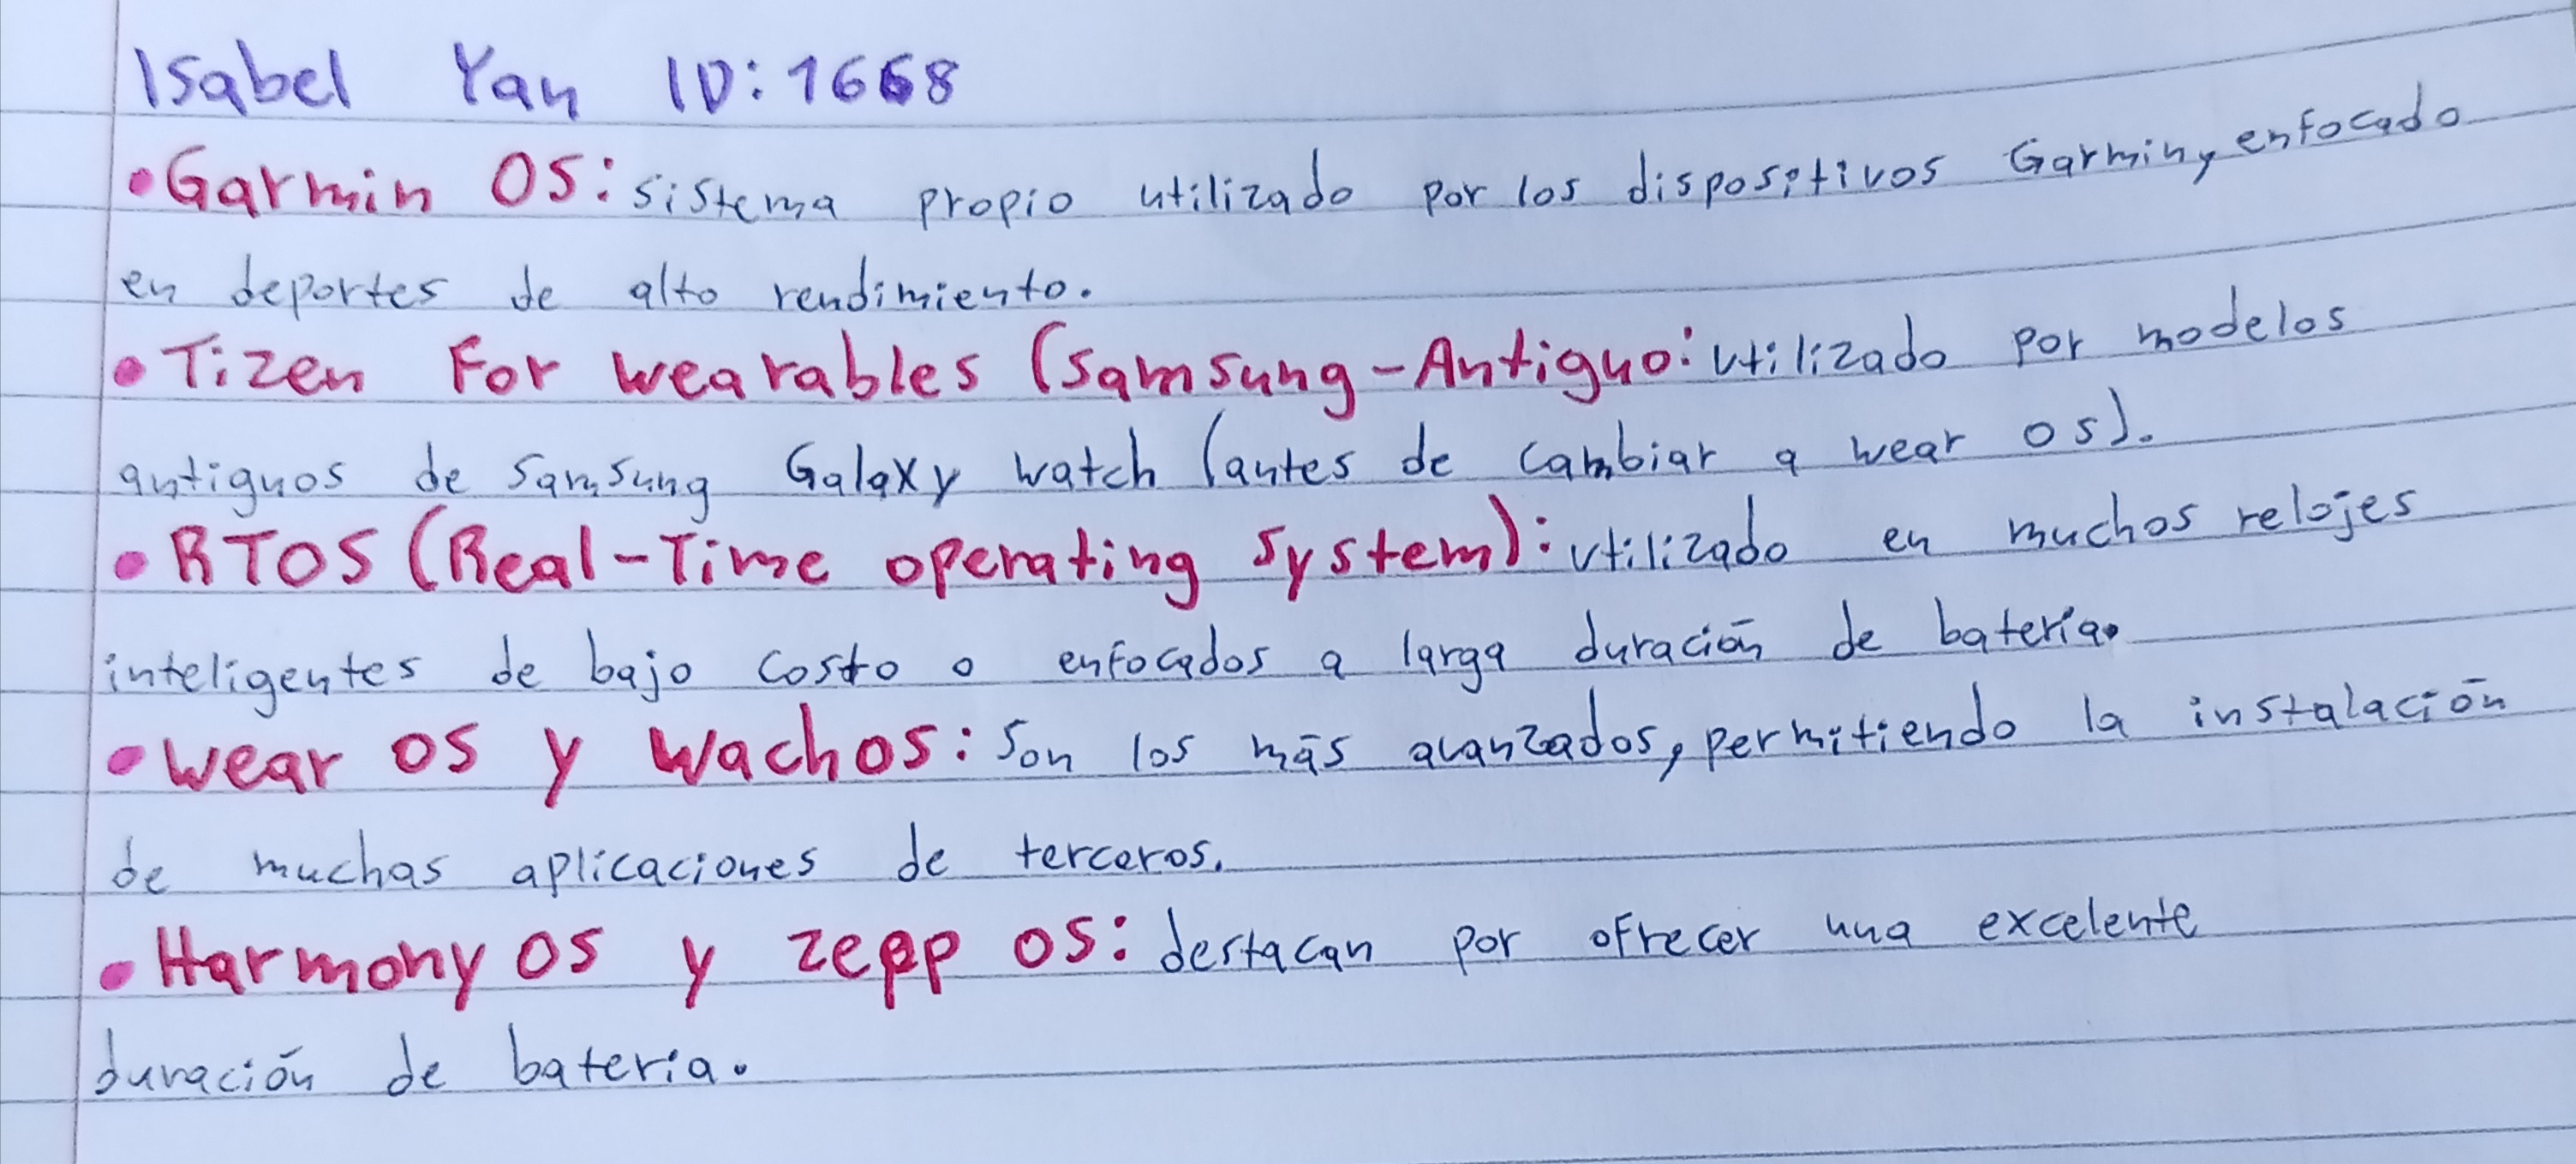 Isabel Yan ID: 1668
• Garmin OS: sistema propio utilizado por los dispositivos Garmin, enfocado
en deportes de alto rendimiento.
• Tizen For wearables (Samsung-Antiguo: utilizado por modelos
antiguos de Samsung Galaxy watch (antes de cambiar a wear os).
• RTOS (Real-Time operating system): utilizado en muchos relojes
inteligentes de bajo costo o enfocados a larga duración de batería.
• Wear OS y Wachos: Son los más avanzados, permitiendo la instalación
de muchas aplicaciones de terceros.
• Harmony OS y zepp OS: destacan por ofrecer una excelente
duración de bateria.